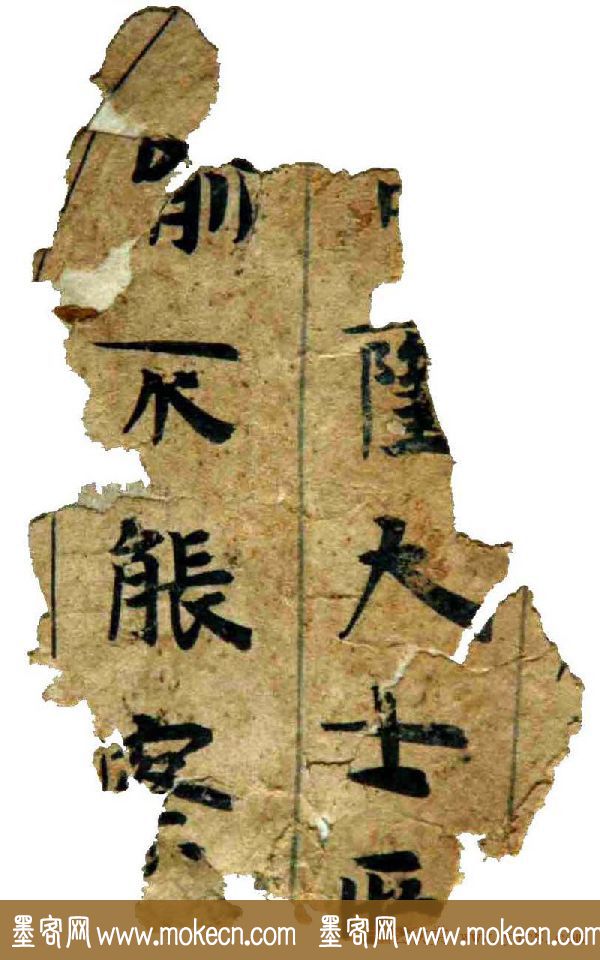 薩大士所
喻不能
墨客网 www.mokecn.com 墨客网 www.mokecn.com